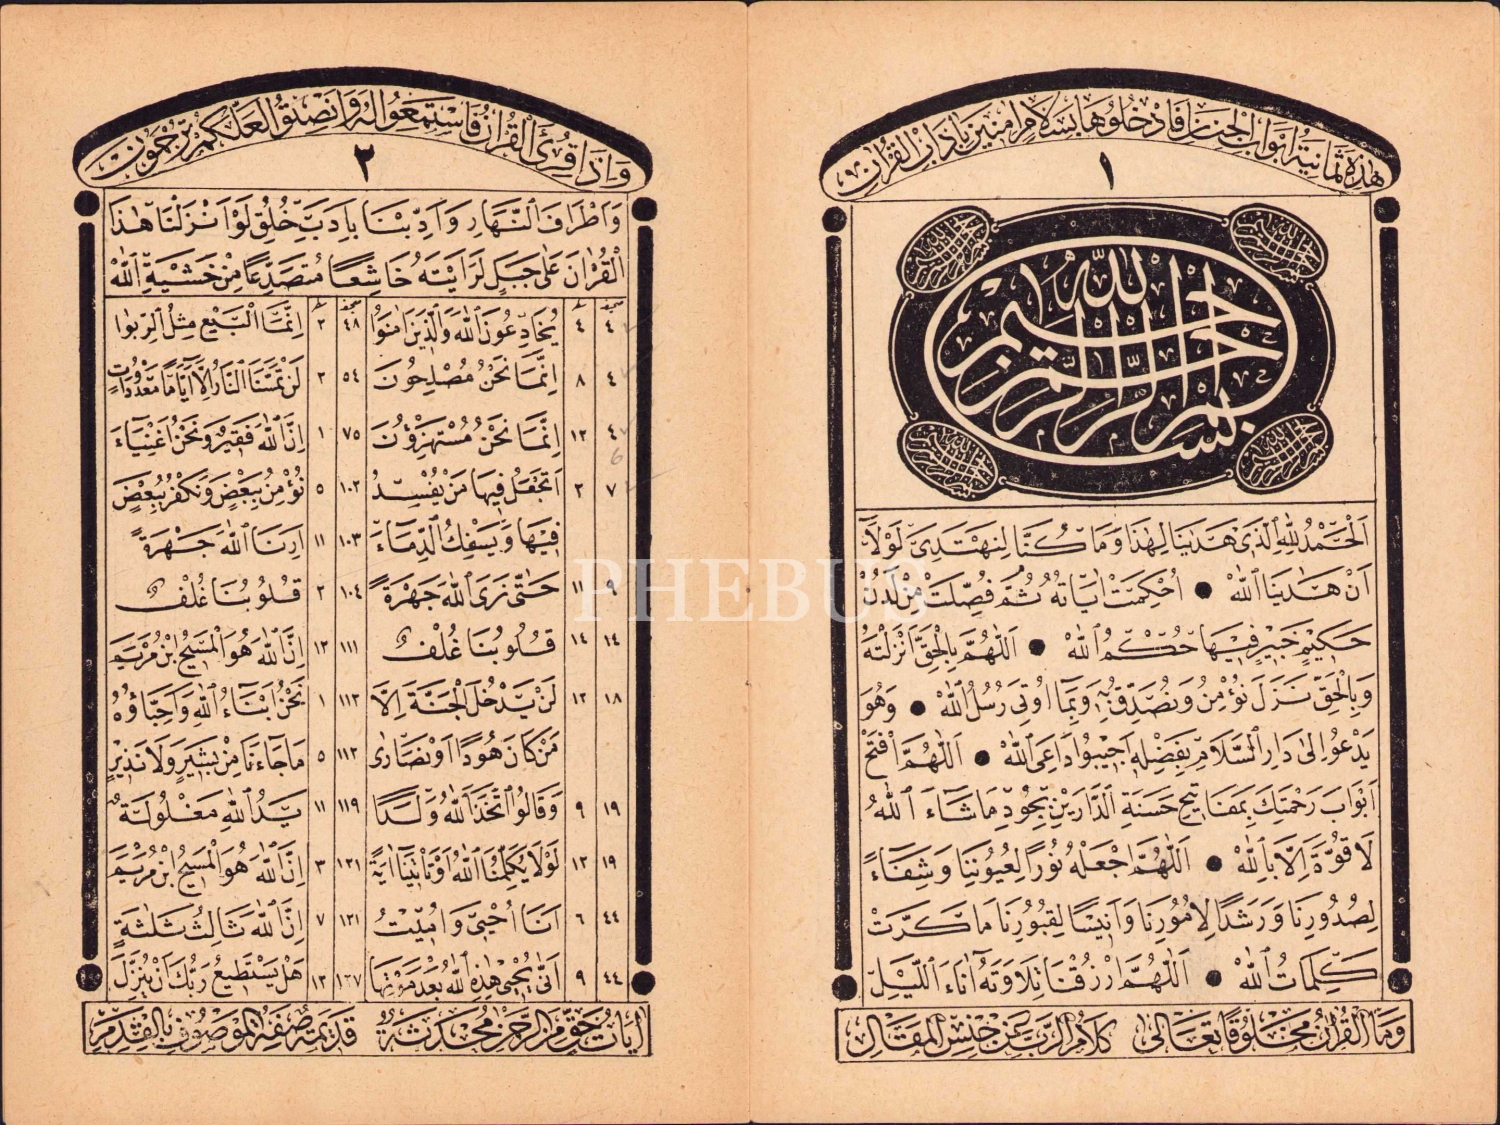 هذه ثمانية ابواب الجنان فادخلوها بسلام امنين باداب القرآن
١
بسم الله الرحمن الرحيم
اَلْحَمْدُ لِلّٰهِ الَّذى هَدٰينَا لِهٰذَا وَمَا كُنَّا لِنَهْتَدِىَ لَوْلَا
اَنْ هَدٰينَا اللّٰهُ ● اُحْكِمَتْ اٰيَاتُهُ ثُمَّ فُصِّلَتْ مِنْ لَدُنْ
حَكِيمٍ خَبِيرٍ فِيهَا حُكْمُ اللّٰهِ ● اَللّٰهُمَّ بِالْحَقِّ اَنْزَلْتَهُ
وَبِالْحَقِّ نَزَلَ نُؤْمِنُ وَنُصَدِّقُ بِمَا اُوتِىَ رُسُلُ اللّٰهِ ● وَهُوَ
يَدْعُو اِلٰى دَارِ السَّلَامِ بِفَضْلِهِ اَجِيبُوا دَاعِىَ اللّٰهِ ● اَللّٰهُمَّ افْتَحْ
اَبْوَابَ رَحْمَتِكَ بِمَفَاتِيحِ حَسَنَةِ الدَّارَيْنِ بِجُودِ مَا شَاءَ اللّٰهُ
لَا قُوَّةَ اِلَّا بِاللّٰهِ ● اَللّٰهُمَّ اجْعَلْهُ نُورًا لِعُيُونِنَا وَشِفَاءً
لِصُدُورِنَا وَرَشَدًا لِاُمُورِنَا وَاَنِيسًا لِقُبُورِنَا مَا كَرَّتْ
كَلِمَاتُ اللّٰهِ ● اَللّٰهُمَّ ارْزُقْنَا تِلَاوَتَهُ اٰنَاءَ اللَّيْلِ
وما القرآن مخلوقا تعالى كلام الرب عن جنس المقال
واذا قرئ القرآن فاستمعوا له وانصتوا لعلكم ترحمون
٢
وَاَطْرَافَ النَّهَارِ وَاَدِّبْنَا بِاَدَبِ خُلُقِ لَوْ اَنْزَلْنَا هٰذَا
الْقُرْاٰنَ عَلٰى جَبَلٍ لَرَاَيْتَهُ خَاشِعًا مُتَصَدِّعًا مِنْ خَشْيَةِ اللّٰهِ
٤ ٤ يُخَادِعُونَ اللّٰهَ وَالَّذِينَ اٰمَنُوا ٤٨ ٢ اِنَّمَا الْبَيْعُ مِثْلُ الرِّبٰوا
٤ ٨ اِنَّمَا نَحْنُ مُصْلِحُونَ ٥٤ ٢ لَنْ تَمَسَّنَا النَّارُ اِلَّا اَيَّامًا مَعْدُودَاتٍ
٤ ١٢ اِنَّمَا نَحْنُ مُسْتَهْزِؤُنَ ٧٥ ١ اِنَّ اللّٰهَ فَقِيرٌ وَنَحْنُ اَغْنِيَاءُ
٧ ٢ اَتَجْعَلُ فِيهَا مَنْ يُفْسِدُ ١٠٢ ٥ نُؤْمِنُ بِبَعْضٍ وَنَكْفُرُ بِبَعْضٍ
فِيهَا وَيَسْفِكُ الدِّمَاءَ ١٠٣ ١١ اَرِنَا اللّٰهَ جَهْرَةً
٩ ١١ حَتّٰى نَرَى اللّٰهَ جَهْرَةً ١٠٤ ٢ قُلُوبُنَا غُلْفٌ
١٤ ١٤ قُلُوبُنَا غُلْفٌ ١١١ ١٢ اِنَّ اللّٰهَ هُوَ الْمَسِيحُ ابْنُ مَرْيَمَ
١٨ ١٢ لَنْ يَدْخُلَ الْجَنَّةَ اِلَّا ١١٢ ١ نَحْنُ اَبْنَاءُ اللّٰهِ وَاَحِبَّاؤُهُ
مَنْ كَانَ هُودًا اَوْ نَصَارٰى ١١٢ ٥ مَا جَاءَنَا مِنْ بَشِيرٍ وَلَا نَذِيرٍ
١٩ ٩ وَقَالُوا اتَّخَذَ اللّٰهُ وَلَدًا ١١٩ ١١ يَدُ اللّٰهِ مَغْلُولَةٌ
١٩ ١٢ لَوْلَا يُكَلِّمُنَا اللّٰهُ اَوْ تَأْتِينَا اٰيَةٌ ١٢١ ٣ اِنَّ اللّٰهَ هُوَ الْمَسِيحُ ابْنُ مَرْيَمَ
٤٤ ٦ اَنَا اُحْيِى وَاُمِيتُ ١٢١ ٧ اِنَّ اللّٰهَ ثَالِثُ ثَلٰثَةٍ
٤٤ ٩ اَنّٰى يُحْيِى هٰذِهِ اللّٰهُ بَعْدَ مَوْتِهَا ١٢٧ ١٢ هَلْ يَسْتَطِيعُ رَبُّكَ اَنْ يُنَزِّلَ
آيات حق من الرحمن محدثة قديمة صفة الموصوف بالقدم
PHEBUS